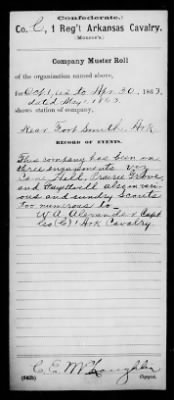 Confederate.
Co. C, 1 Reg't Arkansas Cavalry.
(MONROE'S.)
Company Muster Roll
of the organization named above,
for Oct 1, 62 to Apr 30, 1863,
dated May 1, 1863
shows station of company,
Near Fort Smith, Ark
RECORD OF EVENTS.
This company has been in
three engagements viz
Cane Hill, Prairie Grove
and Fayettvill also in
ous and sundry Scouts
too numerous to-
W. A. Alexander Capt
Co C, 1 Ark Cavalry.
C. E. McLoughlin
Copyist.